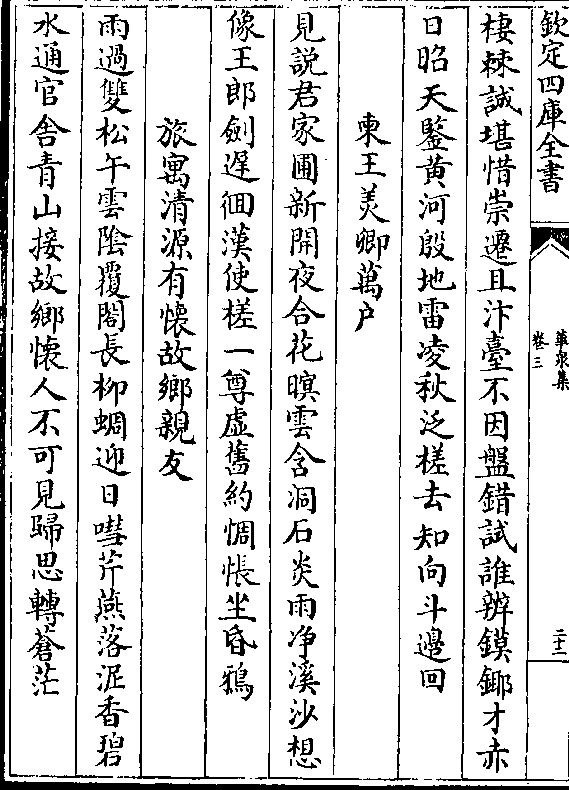 欽定四庫全書
卷三
二十二
棲棘誠堪惜崇遷且汴臺不因盤錯試誰辨鏌鋣才赤
日昭天鑒黄河殷地雷凌秋泛槎去知向斗邊回
柬王美卿萬户
見説君家圃新開夜合花暝雲含洞石炎雨净溪沙想
像王郎劍遲徊漢使槎一尊虚舊約惆悵坐昏鴉
旅寓清源有懐故鄉親友
雨過雙松午雲陰覆閣長柳蜩迎日嘒芹燕落泥香碧
水通官舍青山接故鄉懐人不可見歸思轉蒼茫